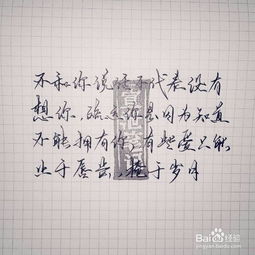 不和你说话不代表没有
想你，疏远你是因为知道
不能拥有你，有些爱只能
止于唇齿，掩于岁月
Baidu经验